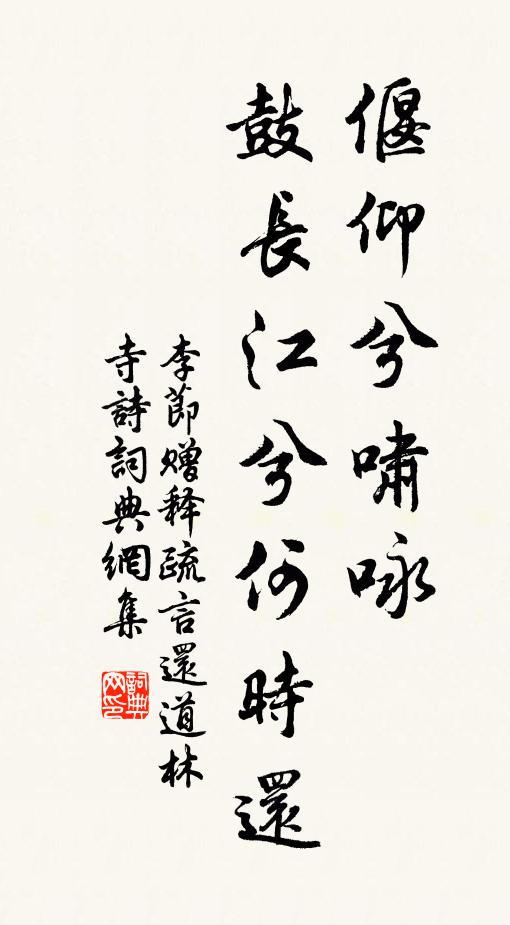 偃仰兮嘯咏
鼓長江兮何時還
李節赠释疏言還道林
寺詩詞典網集
詞典网印